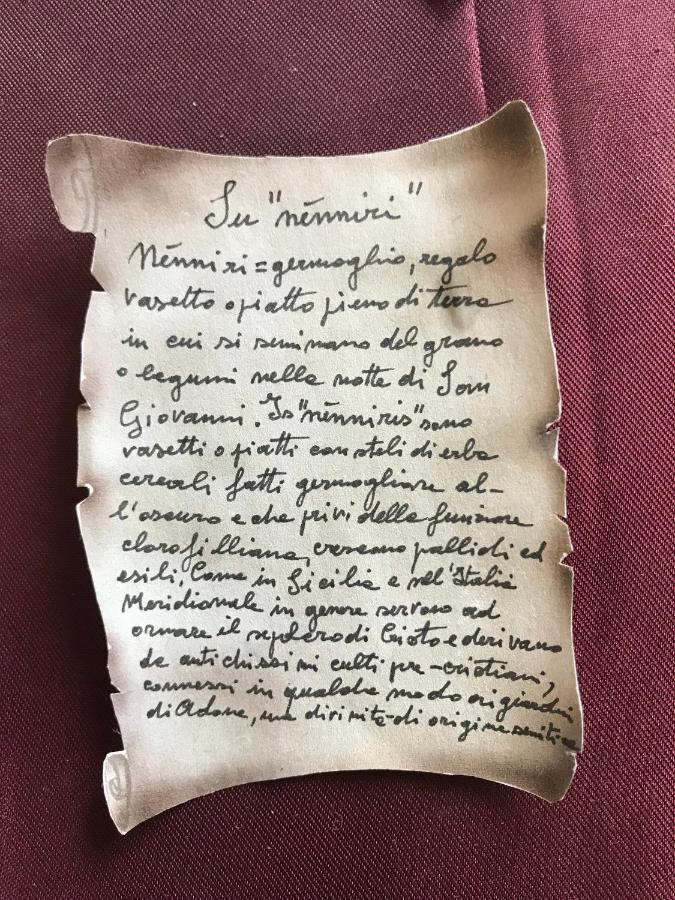 Su "nénniri"
Nénniri = germoglio, regalo
vasetto o piatto pieno di terra
in cui si seminano del grano
o legumi nella notte di San
Giovanni. Is "nénniris" sono
vasetti o piatti con steli di erba
cereali fatti germogliare al-
l'oscuro e che privi della funzione
clorofilliana, crescono pallidi ed
esili. Come in Sicilia e nell'Italia
Meridionale in genere servono ad
ornare il sepolcro di Cristo e derivano
da antichissimi culti pre-cristiani,
connessi in qualche modo ai giardini
di Adone, una divinità di origine semitica